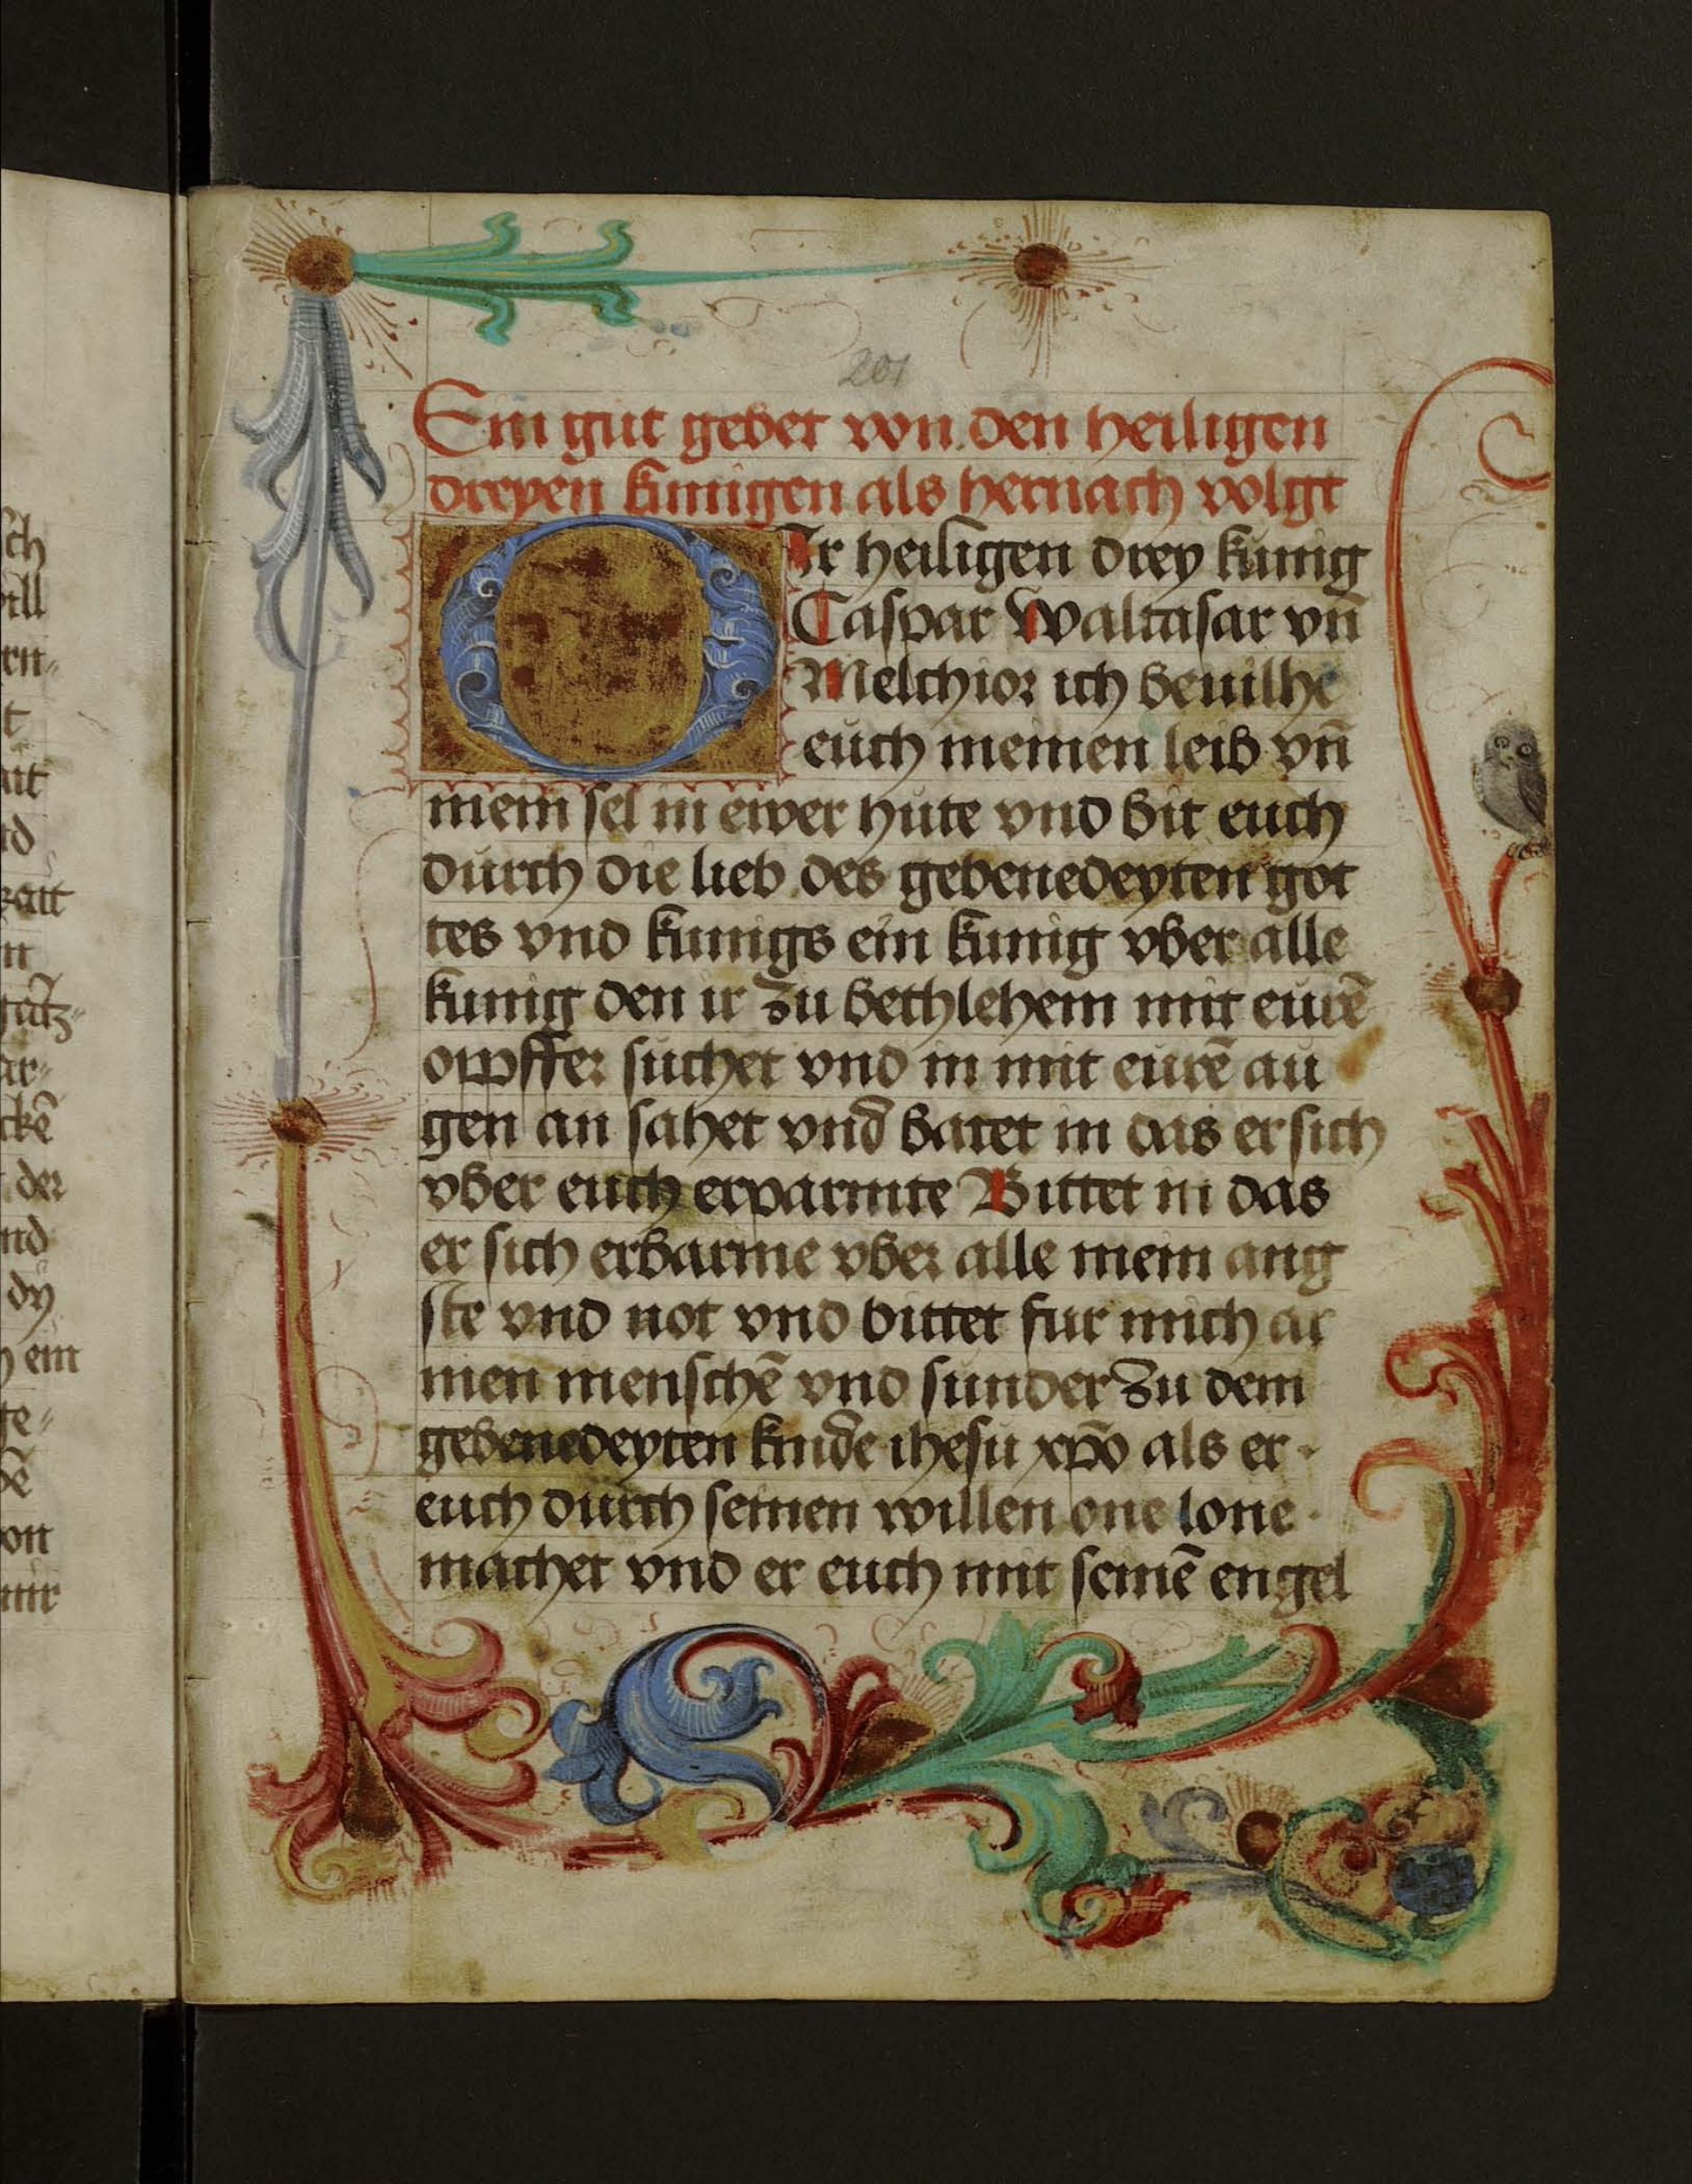 201
Ein gut gebet von den heiligen
dreyen kunigen als hernach volgt
O Ir heiligen drey kunig
Caspar Waltasar vn̄
Melchior ich beuilhe
euch meinen leib vn̄
mein sel in ewer hute vnd bit euch
durch die lieb des gebenedeyten got
tes vnd kunigs ein kunig vber alle
kunig den ir zu bethlehem mit eurē
opffer suchet vnd in mit eurē au
gen an sahet vnd batet in das er sich
vber euch erparmte Bittet in das
er sich erbarme vber alle mein ang
ste vnd not vnd bittet fur mich ar
men menschē vnd sunder zu dem
gebenedeyten kinde ihesu xp̄o als er
euch durch seinen willen one lone
machet vnd er euch mit seinē engel